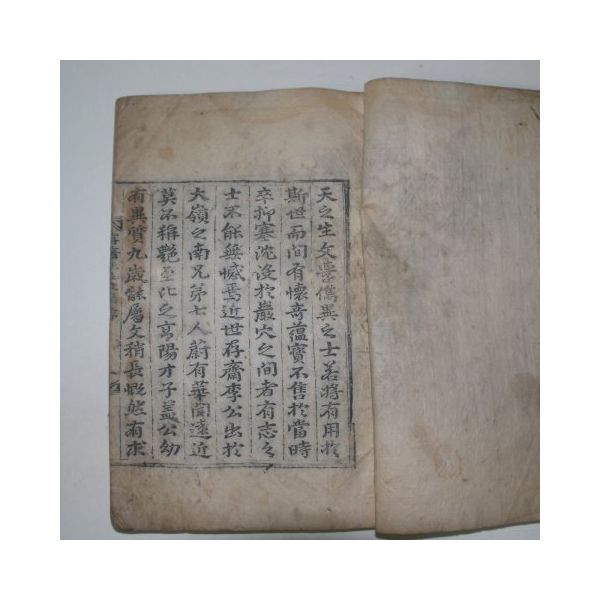 天之生文學儁異之士若將有用於
斯世而間有懷奇蘊寶不售於當時
卒抑塞沈沒於巖穴之間者有志之
士不能無憾焉近世存齋李公出於
大嶺之南兄弟七人蔚有華聞遠近
莫不稱艷至比之高陽才子盖公幼
有異質九歲能屬文稍長慨然有求